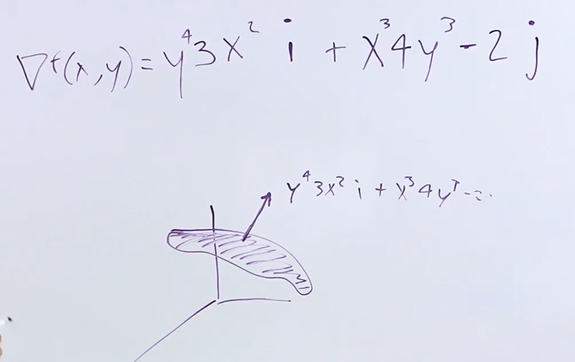 ∇f(x,y) = y⁴3x² i + x³4y³ - 2 j
y⁴3x² i + x³4y³ -